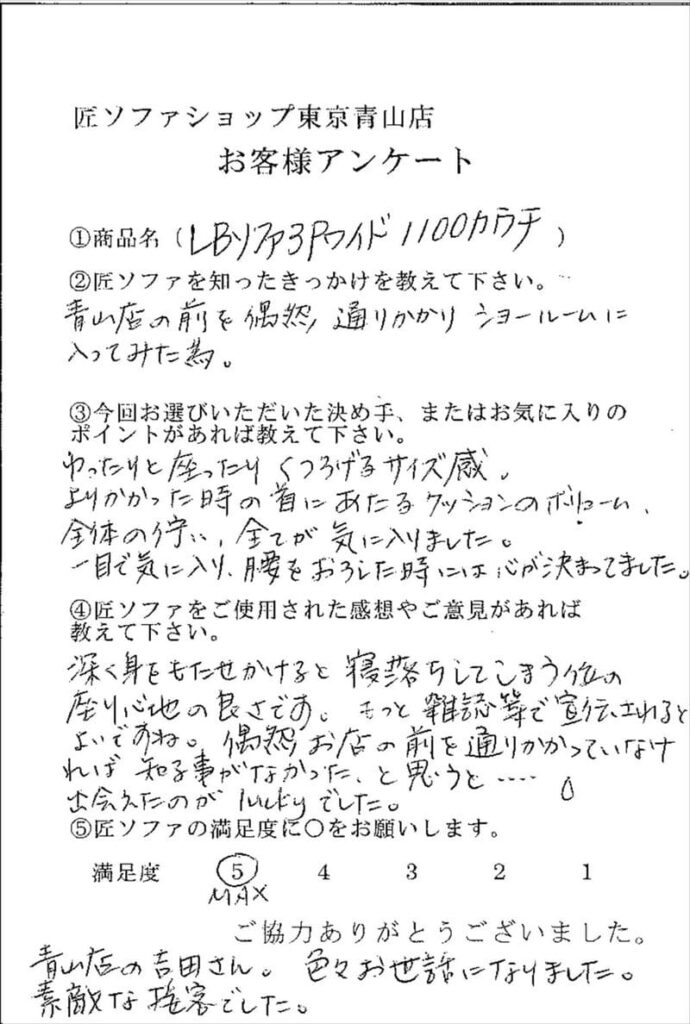 匠ソファショップ東京青山店
お客様アンケート
①商品名（LBソファ3Pワイド 1100カウチ）
②匠ソファを知ったきっかけを教えて下さい。
青山店の前を偶然通りかかり ショールームに
入ってみた為。
③今回お選びいただいた決め手、またはお気に入りの
ポイントがあれば教えて下さい。
ゆったりと座ったり くつろげるサイズ感。
よりかかった時の首にあたるクッションのボリューム、
全体の佇い、全てが気に入りました。
一目で気に入り、腰をおろした時には心が決まってました。
④匠ソファをご使用された感想やご意見があれば
教えて下さい。
深く身をもたせかけると寝落ちしてしまう位の
座り心地の良さです。もっと雑誌等で宣伝されると
よいですね。偶然お店の前を通りかかっていなけ
れば 知る事がなかった、と思うと……
出会えたのがluckyでした。
⑤匠ソファの満足度に○をお願いします。
満足度 5 4 3 2 1
MAX
ご協力ありがとうございました。
青山店の吉田さん。色々お世話になりました。
素敵な接客でした。